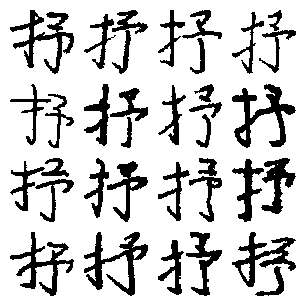 抒抒抒抒
抒抒抒抒
抒抒抒抒
抒抒抒抒